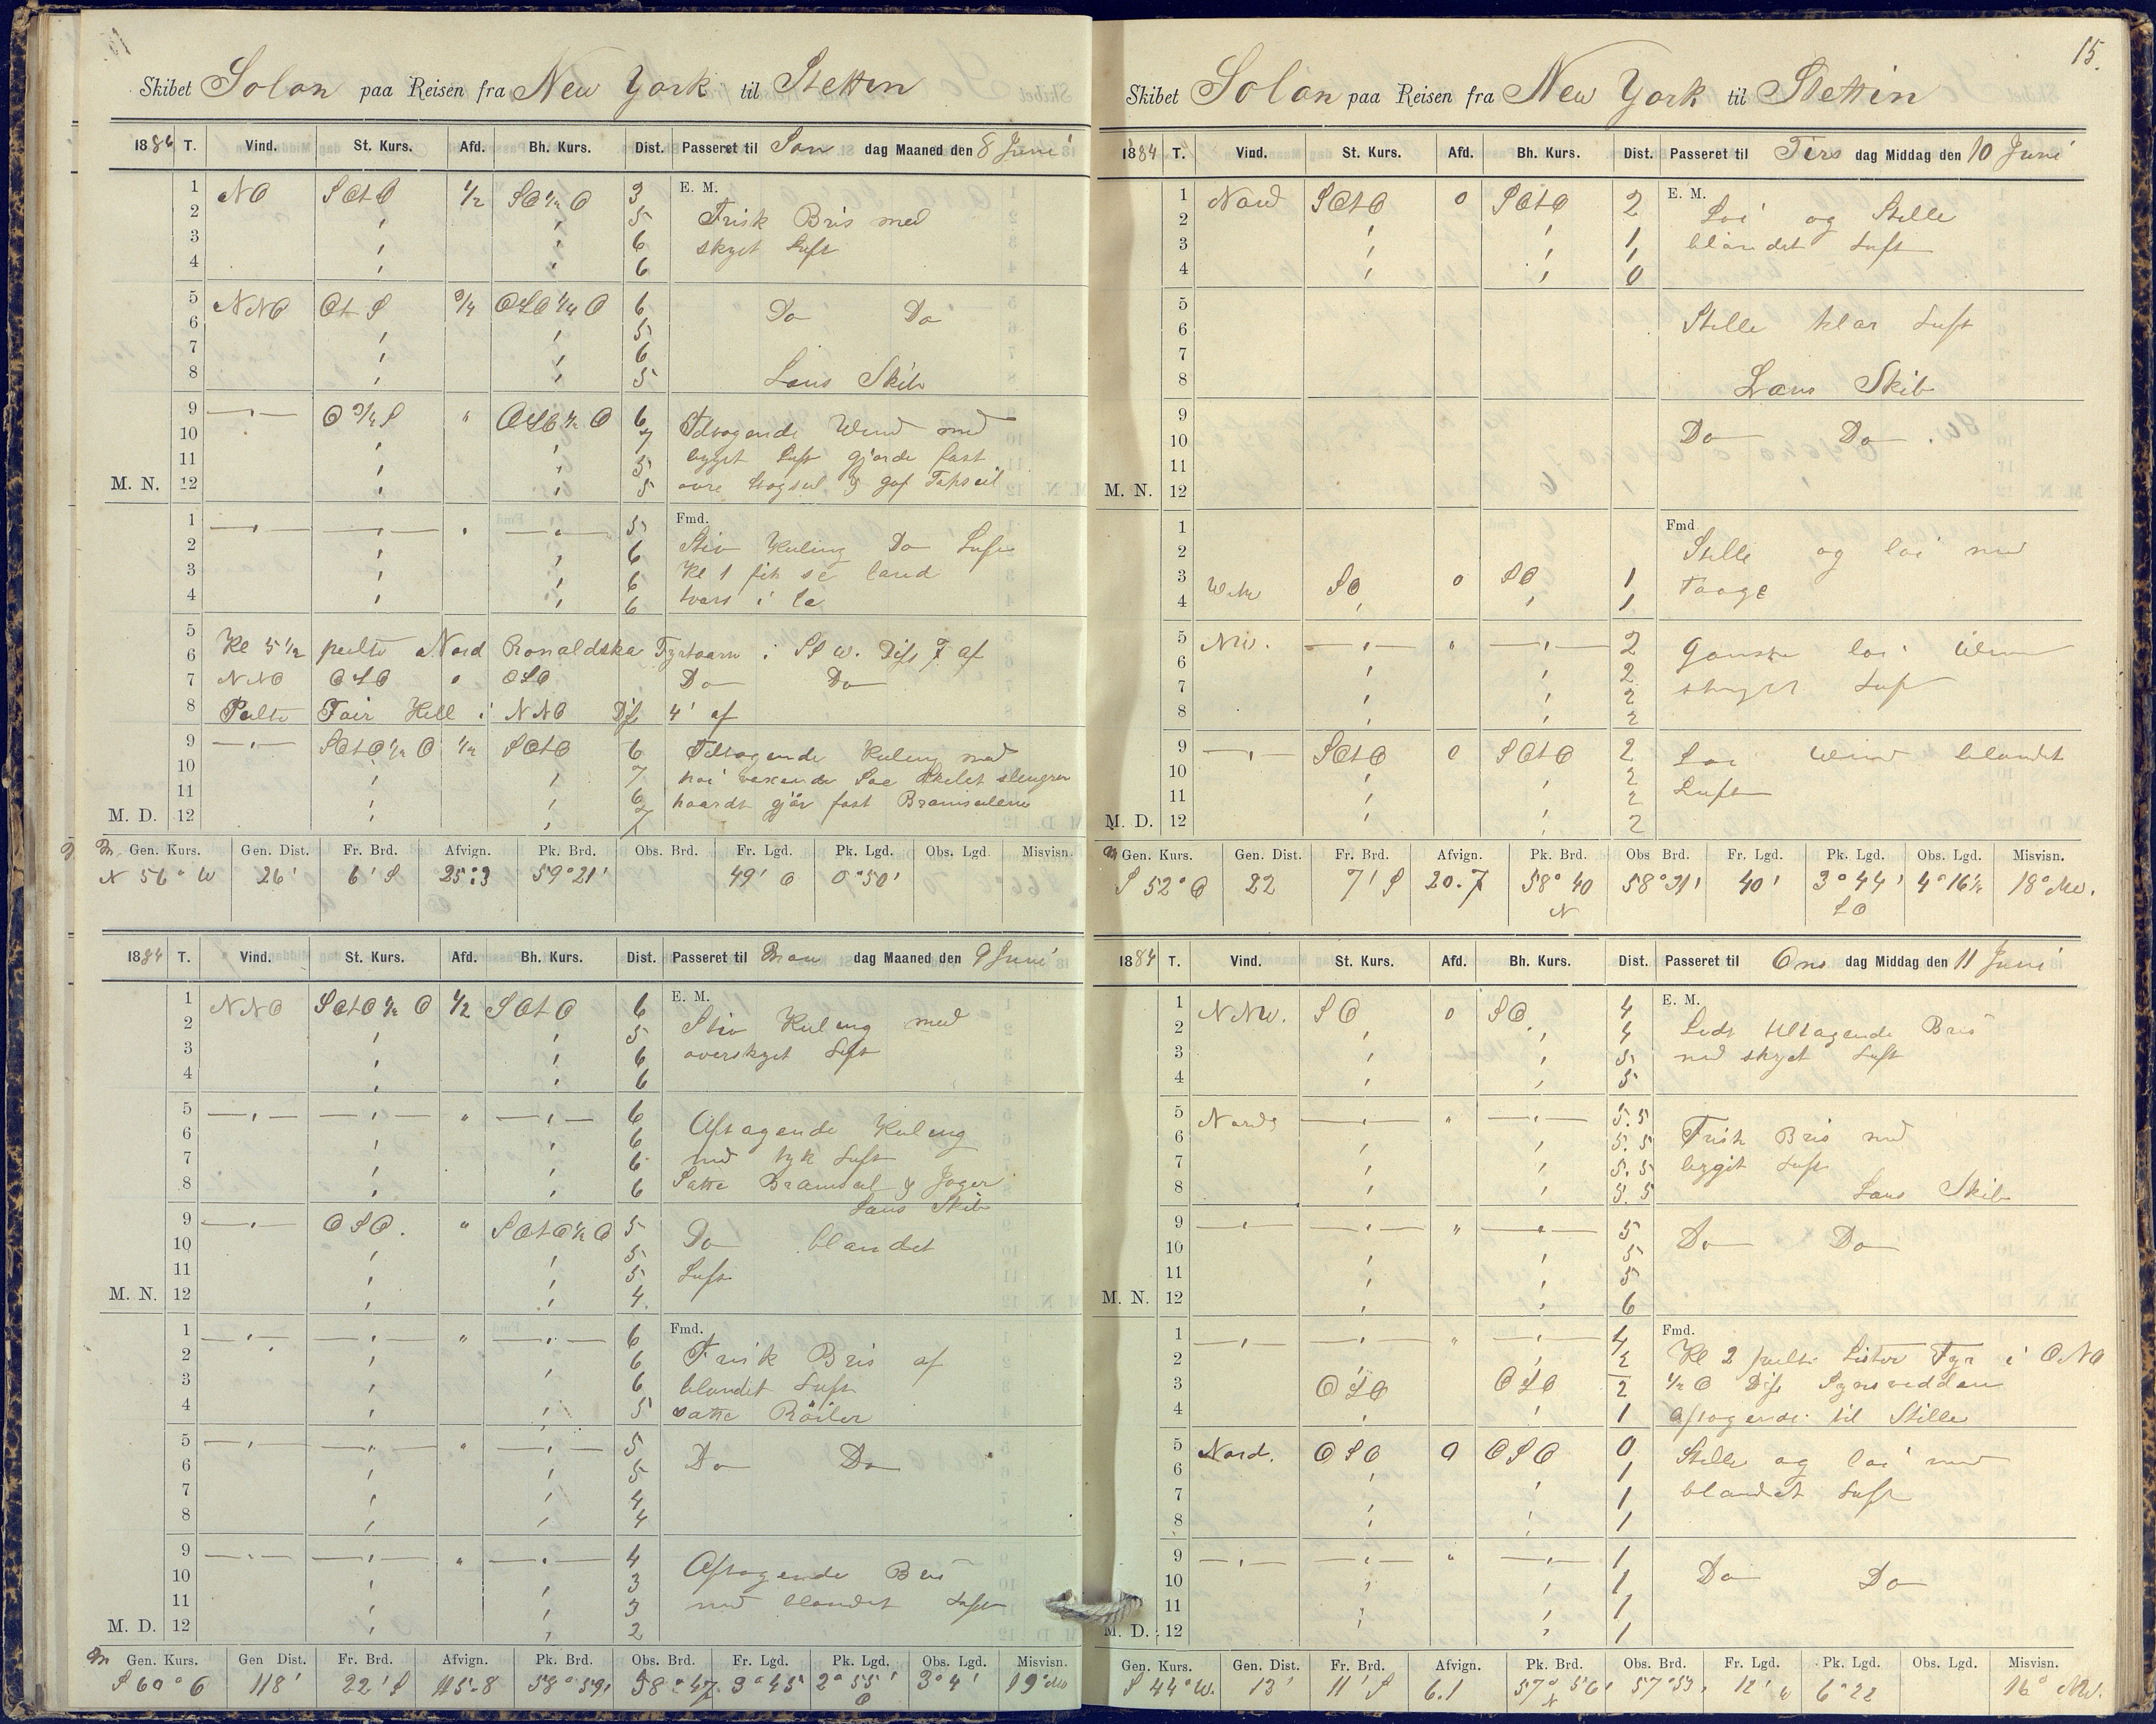 Skibet Solon paa Reisen fra New York til Stettin
1884 T. Vind. St. Kurs. Afd. Bh. Kurs. Dist. Passeret til Søn dag Maaned den 8 Juni
1 NO SOtO 1/2 SO 1/2 O 3 E. M.
2 " " 5 Frisk Bris med
3 " " 6 skyet Luft
4 " " 6
5 NNO Ot S 3/4 OSO 1/4 O 6 Do Do
6 " " 5
7 " " 6
8 " " 5 Læns Skib
9 —"— O 3/4 S " OSO 1/2 O 6 Tiltagende Wind med
10 " " 7 bygget Luft gjorde fast
11 " " 5
M. N. 12 " " 5
1 —"— —"— " —"— 5 Fmd.
2 " " 6 Stiv Kuling Do Luft
3 " " 6 Kl 1 fik se land
4 " " 6 tvers i læ
5
6 Kl 5 1/2 peilte Nord Ronaldska Fyrtaarn i SSW. Dist 7 af
7 NNO OSO 0 OSO Do Do
8 Peilte Fair Hill i NNO Dist 4' af
9 —"— SOtO 1/2 O 1/2 SOtO 6 Tiltagende Kuling med
10 " " 7 høi voxende Søe Skibet slengrer
11 " " 6 haardt gjör fast Bramseilene
M. D. 12 " " 7
Gen. Kurs. Gen. Dist. Fr. Brd. Afvign. Pk. Brd. Obs. Brd. Fr. Lgd. Pk. Lgd. Obs. Lgd. Misvisn.
N 56° W 26' 6' S 25:3 59°21' 49' O 0°50'
1884 T. Vind. St. Kurs. Afd. Bh. Kurs. Dist. Passeret til Man dag Maaned den 9 Juni
1 NNO SOtO 1/2 O 1/2 SOtO 6 E. M.
2 " " 5 Stiv Kuling med
3 " " 6 overskyet Luft
4 " " 6
5 —"— —"— " —"— 6 Aftagende Kuling
6 " " 6 med tyk Luft
7 " " 6 Satte Bramseil & Jager
8 " " 6 Læns Skib
9 —"— OSO. " SOtO 1/2 O 5 Do blandet
10 " " 5
11 " " 5 Luft
M. N. 12 " " 4.
1 —"— —"— " —"— 6 Fmd.
2 " " 6 Frisk Bris af
3 " " 6 blandet Luft
4 " " 5 satte Röiler
5 —"— —"— " —"— 5 Do Do
6 " " 5
7 " " 4
8 " " 4
9 —"— —"— " —"— 4 Aftagende Bris
10 " " 3
11 " " 3 med blandet Luft
M. D. 12 " " 2
Gen. Kurs. Gen Dist. Fr. Brd. Afvign. Pk. Brd. Obs. Brd. Fr. Lgd. Pk. Lgd. Obs. Lgd. Misvisn.
S 60° O 118' 22' S 115.8 58°59' 58°47 3°45' 2°55' O 3°4' 19°
15.
Skibet Solon paa Reisen fra New York til Stettin
1884 T. Vind. St. Kurs. Afd. Bh. Kurs. Dist. Passeret til Tirs dag Middag den 10 Juni
1 Nord SOtO 0 SOtO 2 E. M.
2 " " Løi og Stille
3 " " 1 blandet Luft
4 " " 0
5
6 Stille klar Luft
7
8 Læns Skib
9
10 Do Do
11
M. N. 12
1 Fmd
2 Stille og løi med
3 SO 0 SO 1 Taage
4 " " 1
5 NW. —"— " —"— 2 Ganske løi Wind
6 " " 2
7 " " 2 skyet Luft
8 " " 2
9 —"— SOtO 0 SOtO 2 Løi Wind blandet
10 " " 2
11 " " 2 Luft
M. D. 12 " " 2
Gen. Kurs. Gen. Dist. Fr. Brd. Afvign. Pk. Brd. Obs Brd. Fr. Lgd. Pk. Lgd. Obs. Lgd. Misvisn.
S 52° O 22 7' S 20.7 58° 40 N 58°31' 40' 3°44' O 4°16 1/2 18° NW.
1884 T. Vind. St. Kurs. Afd. Bh. Kurs. Dist. Passeret til Ons dag Middag den 11 Juni
1 NNW. SO 0 SO 4 E. M.
2 " " 4 Lidt tiltagende Bris
3 " " 5 med skyet Luft
4 " " 5
5 Nord —"— " —"— 5.5
6 " " 5.5 Frisk Bris med
7 " " 5.5 bygit Luft
8 " " 5.5 Læns Skib
9 —"— —"— " —"— 5
10 " " 5 Do Do
11 " " 5
M. N. 12 " " 6
1 —"— —"— " —"— 4 Fmd.
2 " " 2 Kl 2 peilte Lister Fyr i ONO
3 OSO OSO 2 1/2 O Dist Synsvidden
4 " " 1 aftagende til Stille
5 Nord. OSO 0 OSO 0 Stille og løi med
6 " " 1
7 " " 1 blandet Luft
8 " " 1
9 —"— —"— " —"— 1
10 " " 1 Do Do
11 " " 1
M. D. 12 " " 1
Gen. Kurs. Gen. Dist. Fr. Brd. Afvign. Pk. Brd. Obs. Brd. Fr. Lgd. Pk. Lgd. Obs. Lgd. Misvisn.
S 44° W. 13' 11' S 6.1 57° 56' N 57°53' 12' W 6°22 16° NW.